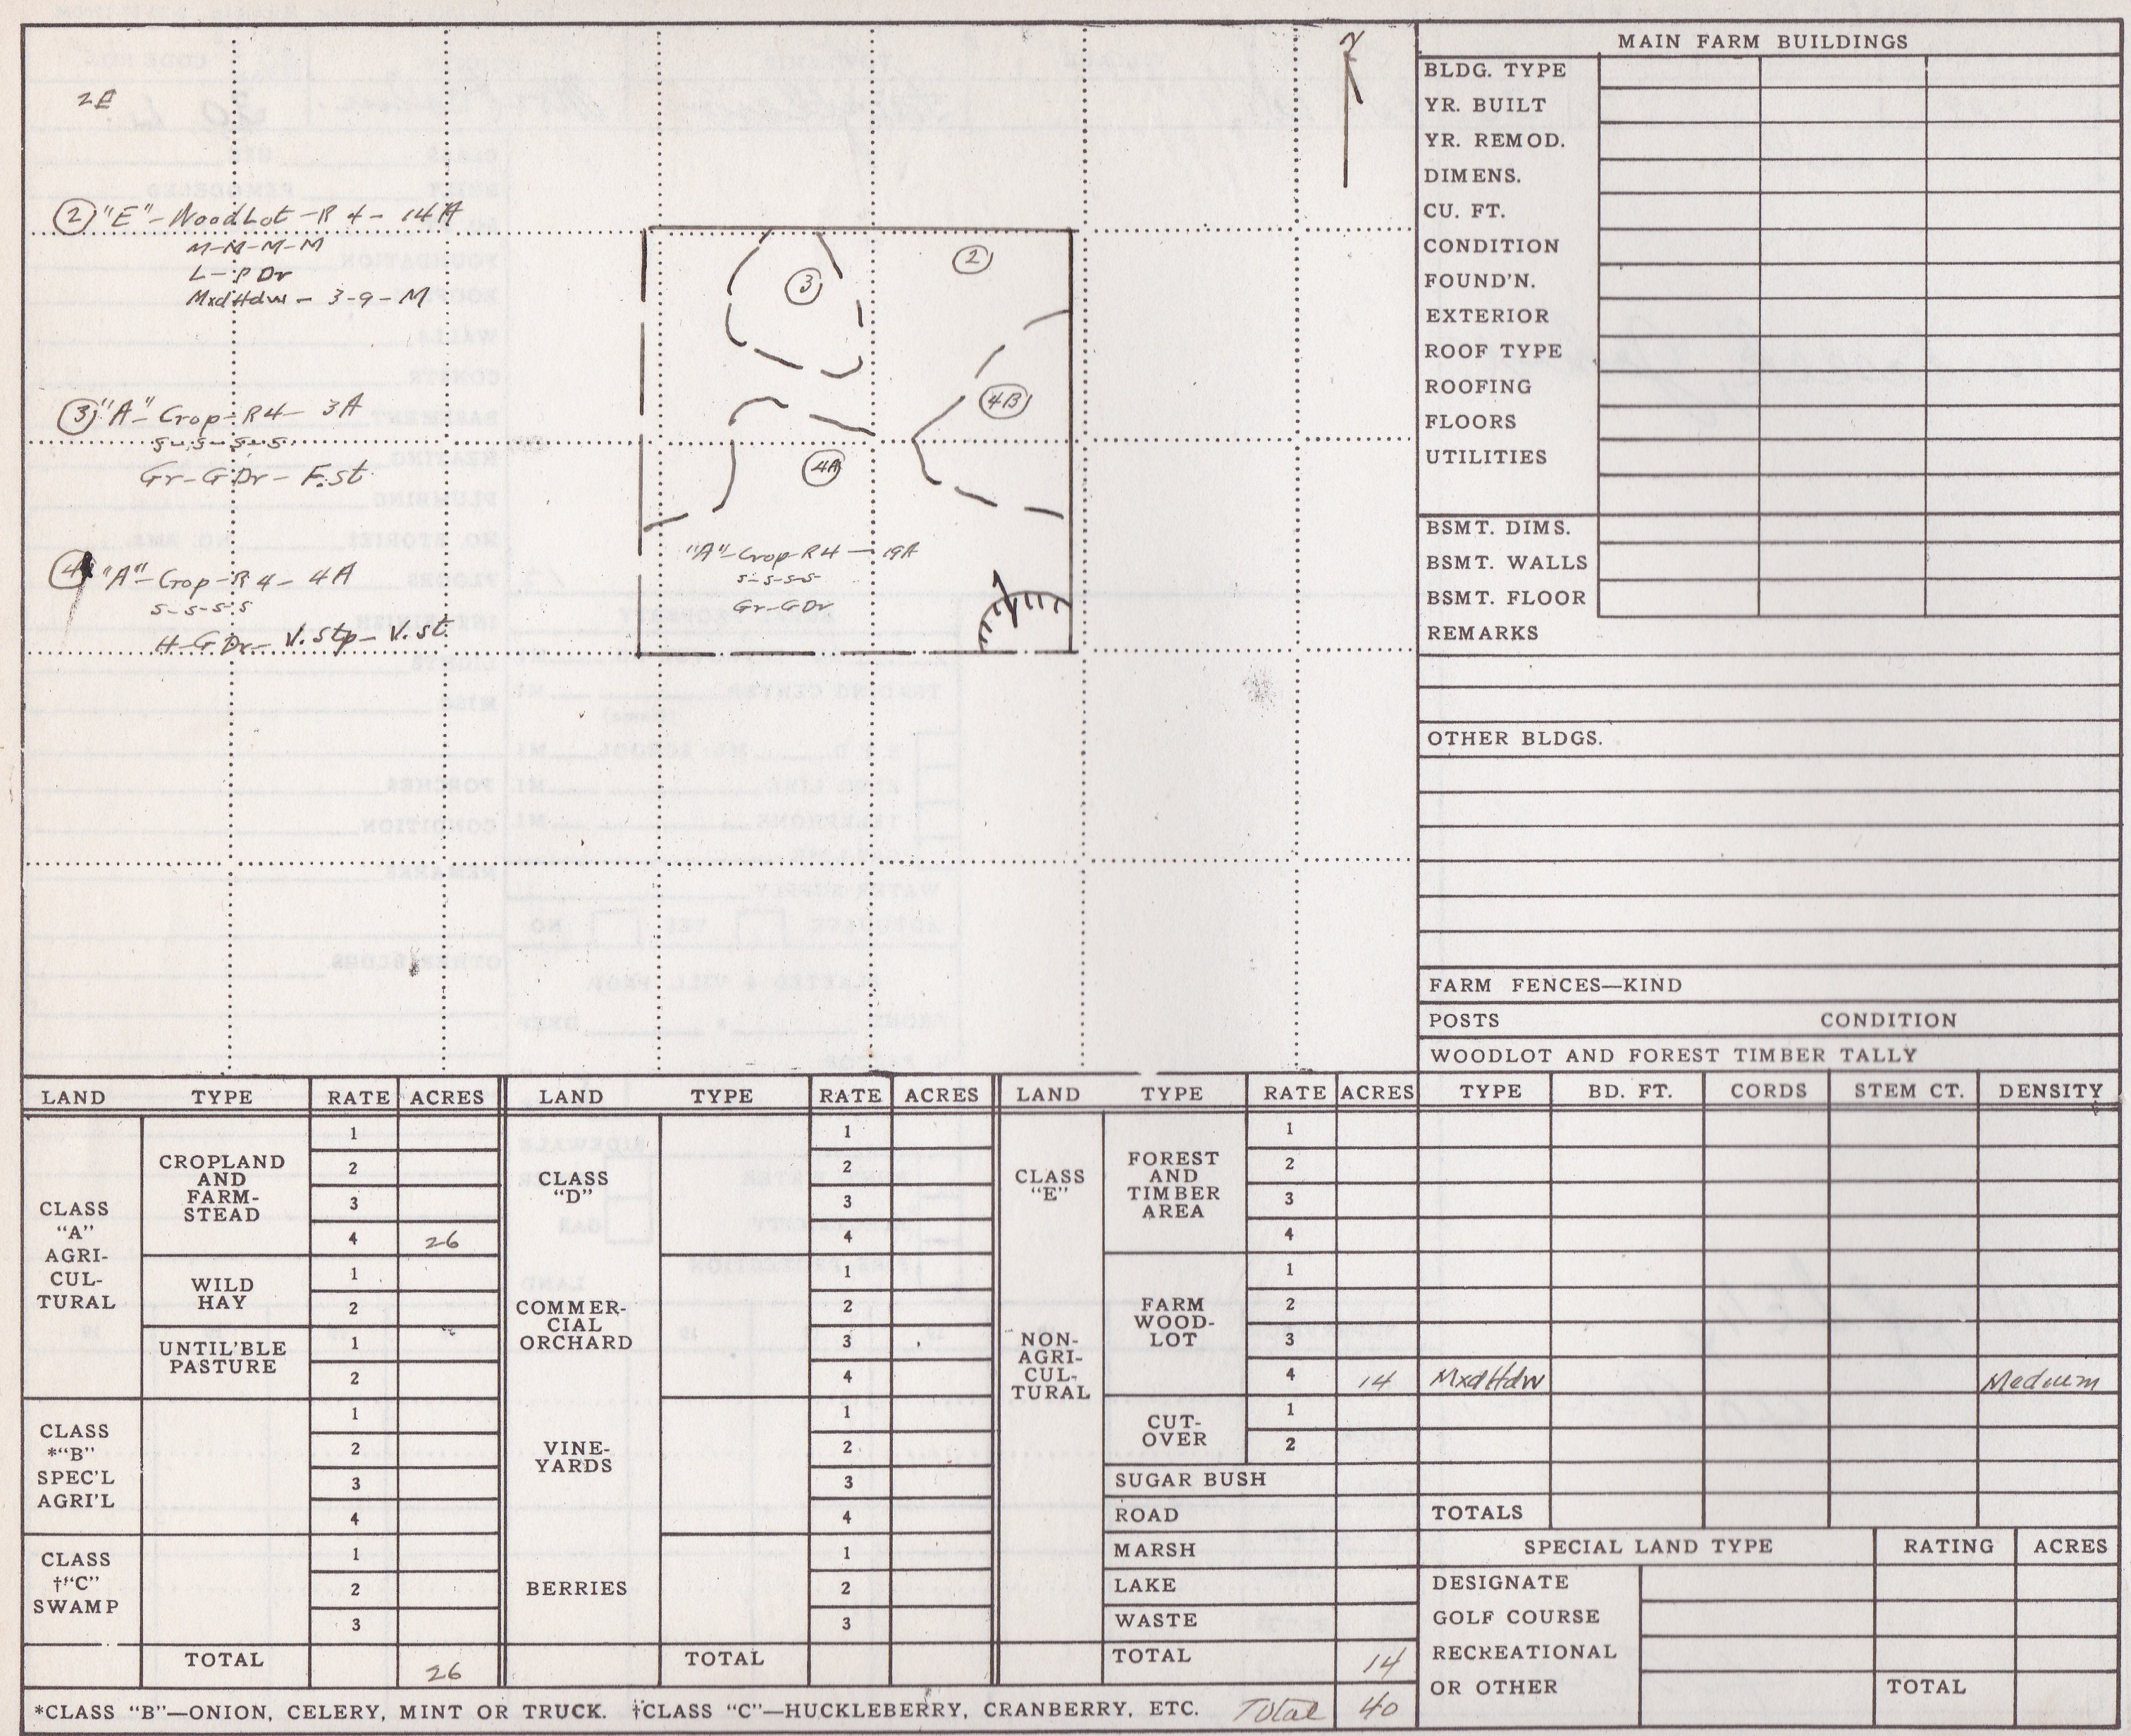 N
2E
② "E"-WoodLot-R4-14A
M-M-M-M
L-PDr
MxdHdw-3-9-M
③ "A"-Crop-R4-3A
S-S-S-S
Gr-GDr-F.st.
"A"-Crop-R4-4A
S-S-S-S
H-GDr-V.stp-V.st.
③
②
4B
4A
"A"-Crop-R4-19A
S-S-S-S
Gr-GDr
MAIN FARM BUILDINGS
BLDG. TYPE
YR. BUILT
YR. REMOD.
DIMENS.
CU. FT.
CONDITION
FOUND'N.
EXTERIOR
ROOF TYPE
ROOFING
FLOORS
UTILITIES
BSMT. DIMS.
BSMT. WALLS
BSMT. FLOOR
REMARKS
OTHER BLDGS.
FARM FENCES—KIND
POSTS CONDITION
WOODLOT AND FOREST TIMBER TALLY
TYPE BD. FT. CORDS STEM CT. DENSITY
MxdHdw Medium
TOTALS
SPECIAL LAND TYPE RATING ACRES
DESIGNATE
GOLF COURSE
RECREATIONAL
OR OTHER TOTAL
LAND TYPE RATE ACRES
CLASS
"A"
AGRI-
CUL-
TURAL
CROPLAND
AND
FARM-
STEAD
1
2
3
4 26
WILD
HAY
1
2
UNTIL'BLE
PASTURE
1
2
CLASS
*"B"
SPEC'L
AGRI'L
1
2
3
4
CLASS
†"C"
SWAMP
1
2
3
TOTAL 26
LAND TYPE RATE ACRES
CLASS
"D"
1
2
3
4
COMMER-
CIAL
ORCHARD
1
2
3
4
VINE-
YARDS
1
2
3
4
BERRIES
1
2
3
TOTAL
LAND TYPE RATE ACRES
CLASS
"E"
NON-
AGRI-
CUL-
TURAL
FOREST
AND
TIMBER
AREA
1
2
3
4
FARM
WOOD-
LOT
1
2
3
4 14
CUT-
OVER
1
2
SUGAR BUSH
ROAD
MARSH
LAKE
WASTE
TOTAL 14
*CLASS "B"—ONION, CELERY, MINT OR TRUCK. †CLASS "C"—HUCKLEBERRY, CRANBERRY, ETC. Total 40